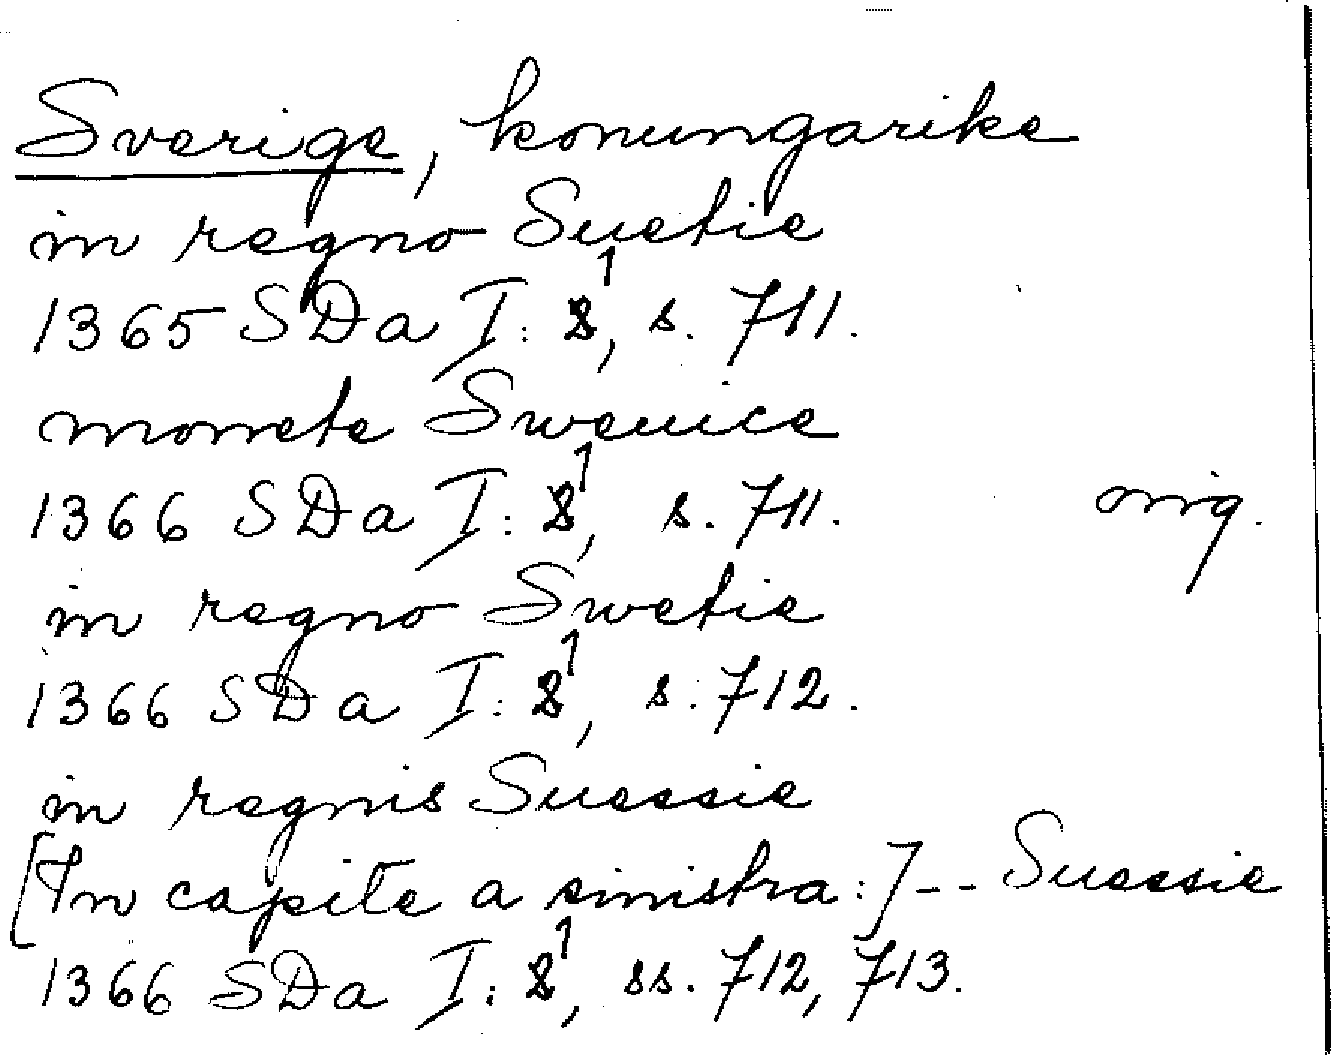 Sverige, konungarike
in regno Suetie
1365 SDa I: 1, s. 711.
monete Swecice
1366 SDa I: 1, s. 711. orig.
in regno Swetie
1366 SDa I: 1, s. 712.
in regnis Suessie
[In capite a sinistra:] -- Suessie
1366 SDa I: 1, ss. 712, 713.